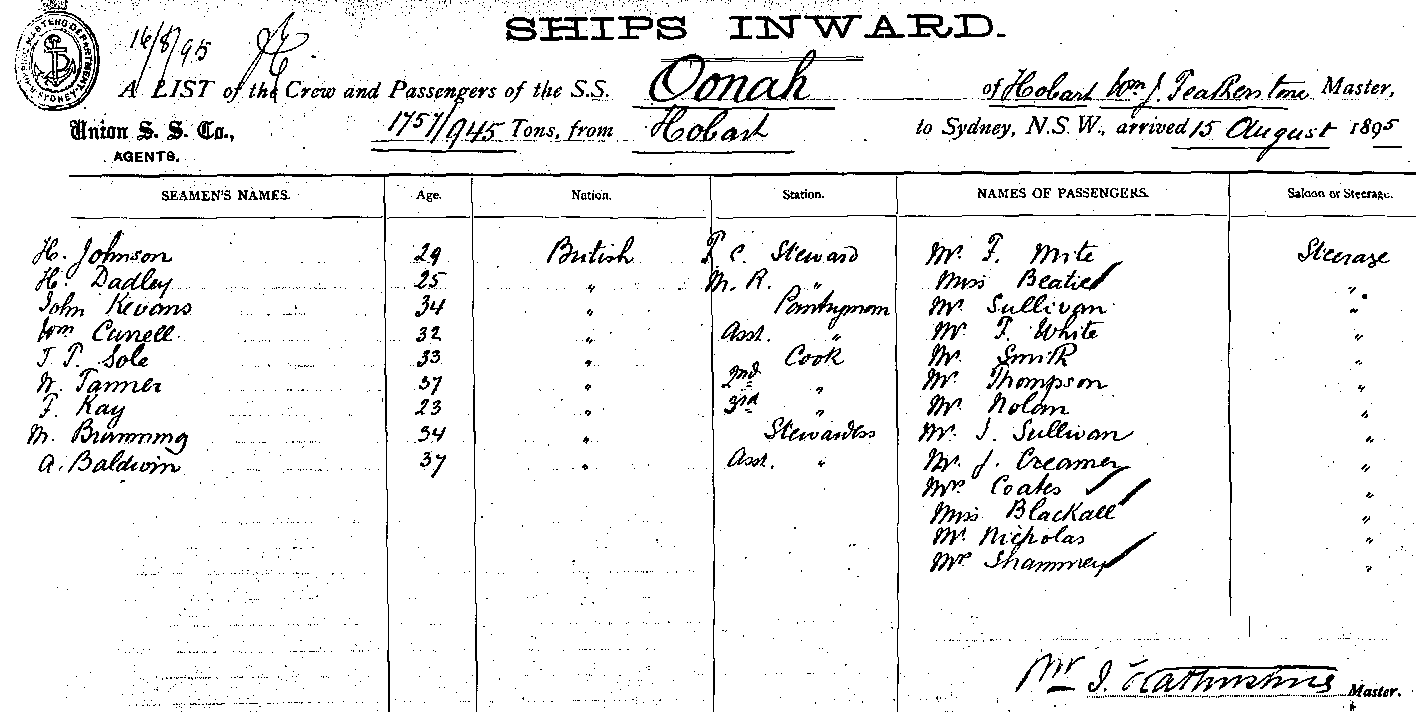 16/8/95
SHIPS INWARD.
A LIST of the Crew and Passengers of the S.S. Oonah of Hobart Wm J. Featherstone Master,
Union S. S. Co., 1757/945 Tons, from Hobart to Sydney, N.S.W., arrived 15 August 1895
AGENTS.
SEAMEN'S NAMES. Age. Nation. Station. NAMES OF PASSENGERS. Saloon or Steerage.
H. Johnson 29 British F. C. Steward Mr. F. Mite Steerage
H. Dadley 25 " M. R. " Miss Beatie "
John Kevans 34 " Pantryman Mr. Sullivan "
Wm Cunell 32 " Asst. " Mr. F. White "
T. P. Sole 33 " Cook Mr. Smith "
W. Tanner 37 " 2nd " Mr. Thompson "
F. Kay 23 " 3rd " Mr. Nolan "
M. Brumming 34 " Stewardess Mr. J. Sullivan "
A. Baldwin 37 " Asst. " Mr. J. Creamer "
Mrs Coates "
Miss Blackall "
Mr. Nicholas "
Mrs Shammey "
Master.